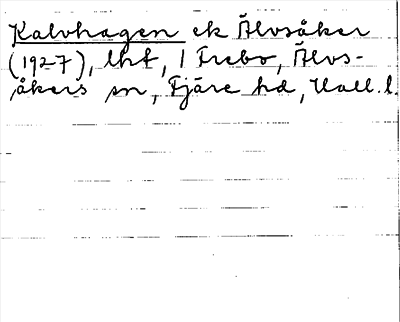 Kalvhagen ek Älvsåker
(1927), lht, 1 Trebo, Älvs-
åkers sn, Fjäre hd, Hall. l.